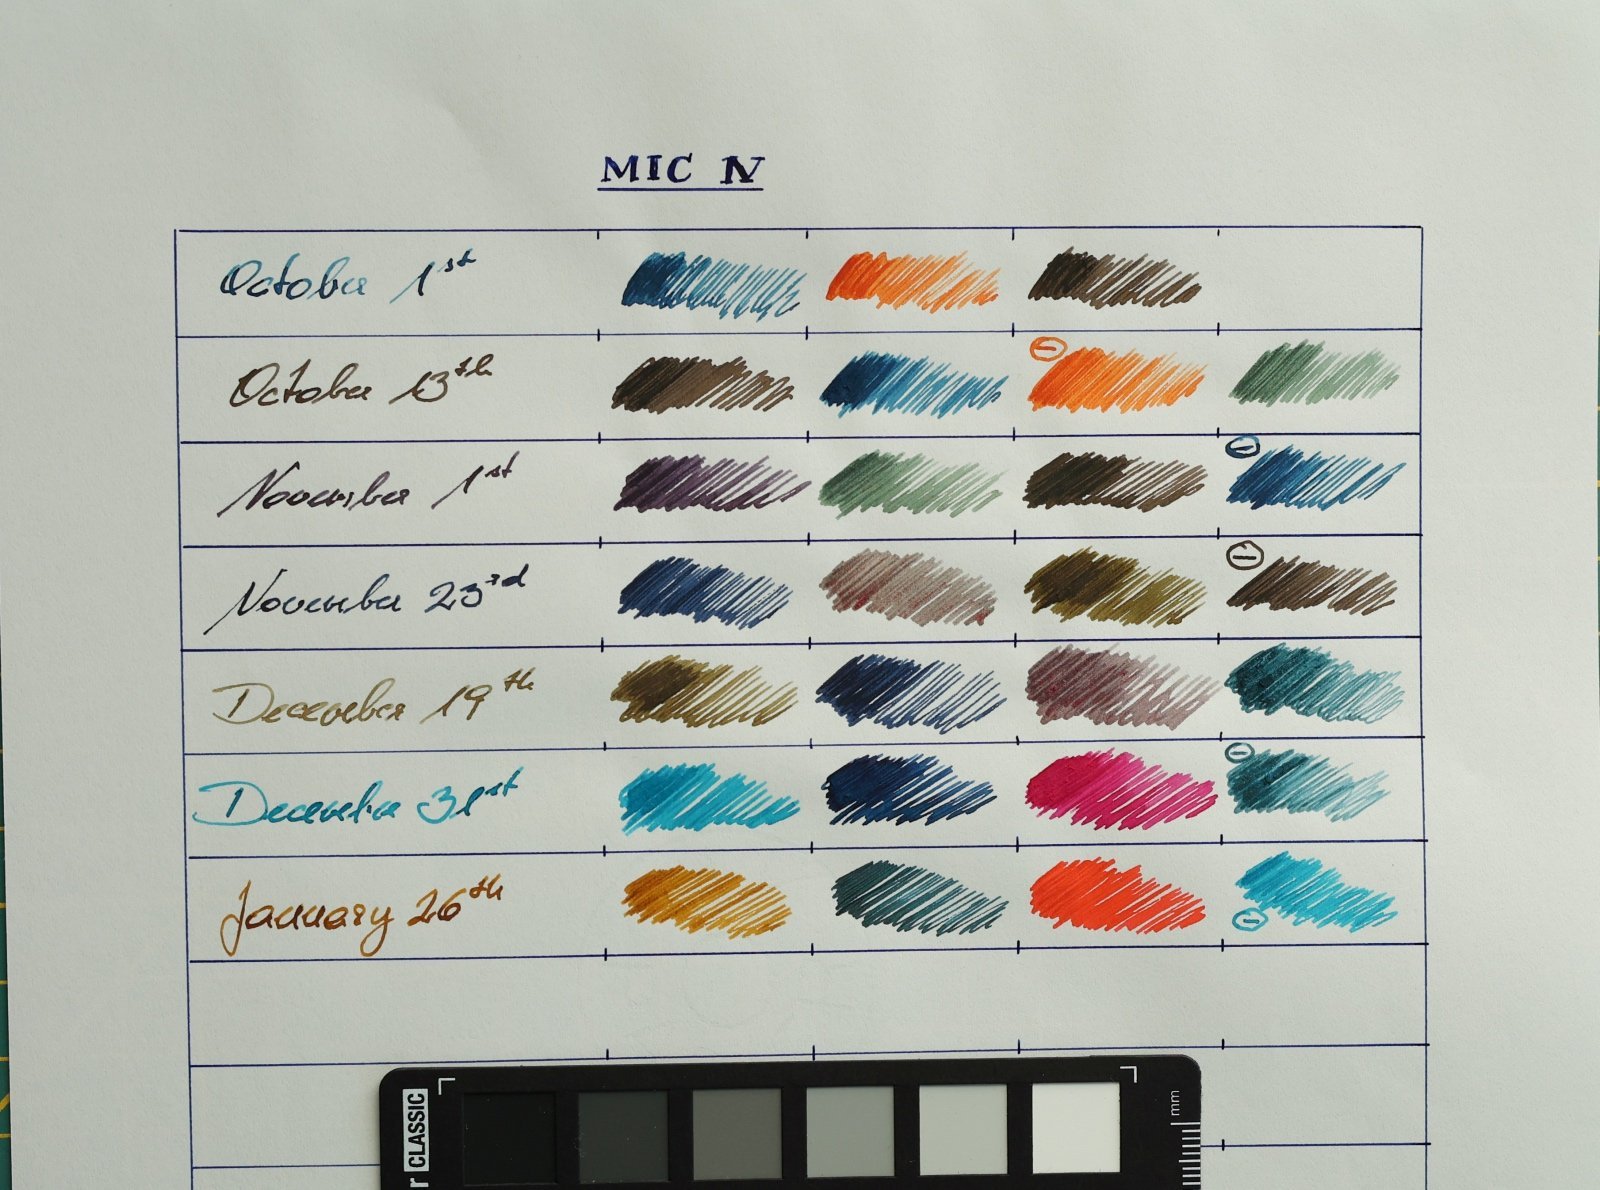 MIC IV
October 1st
October 13th
November 1st
November 23rd
December 19th
December 31st
January 26th
CLASSIC
mm